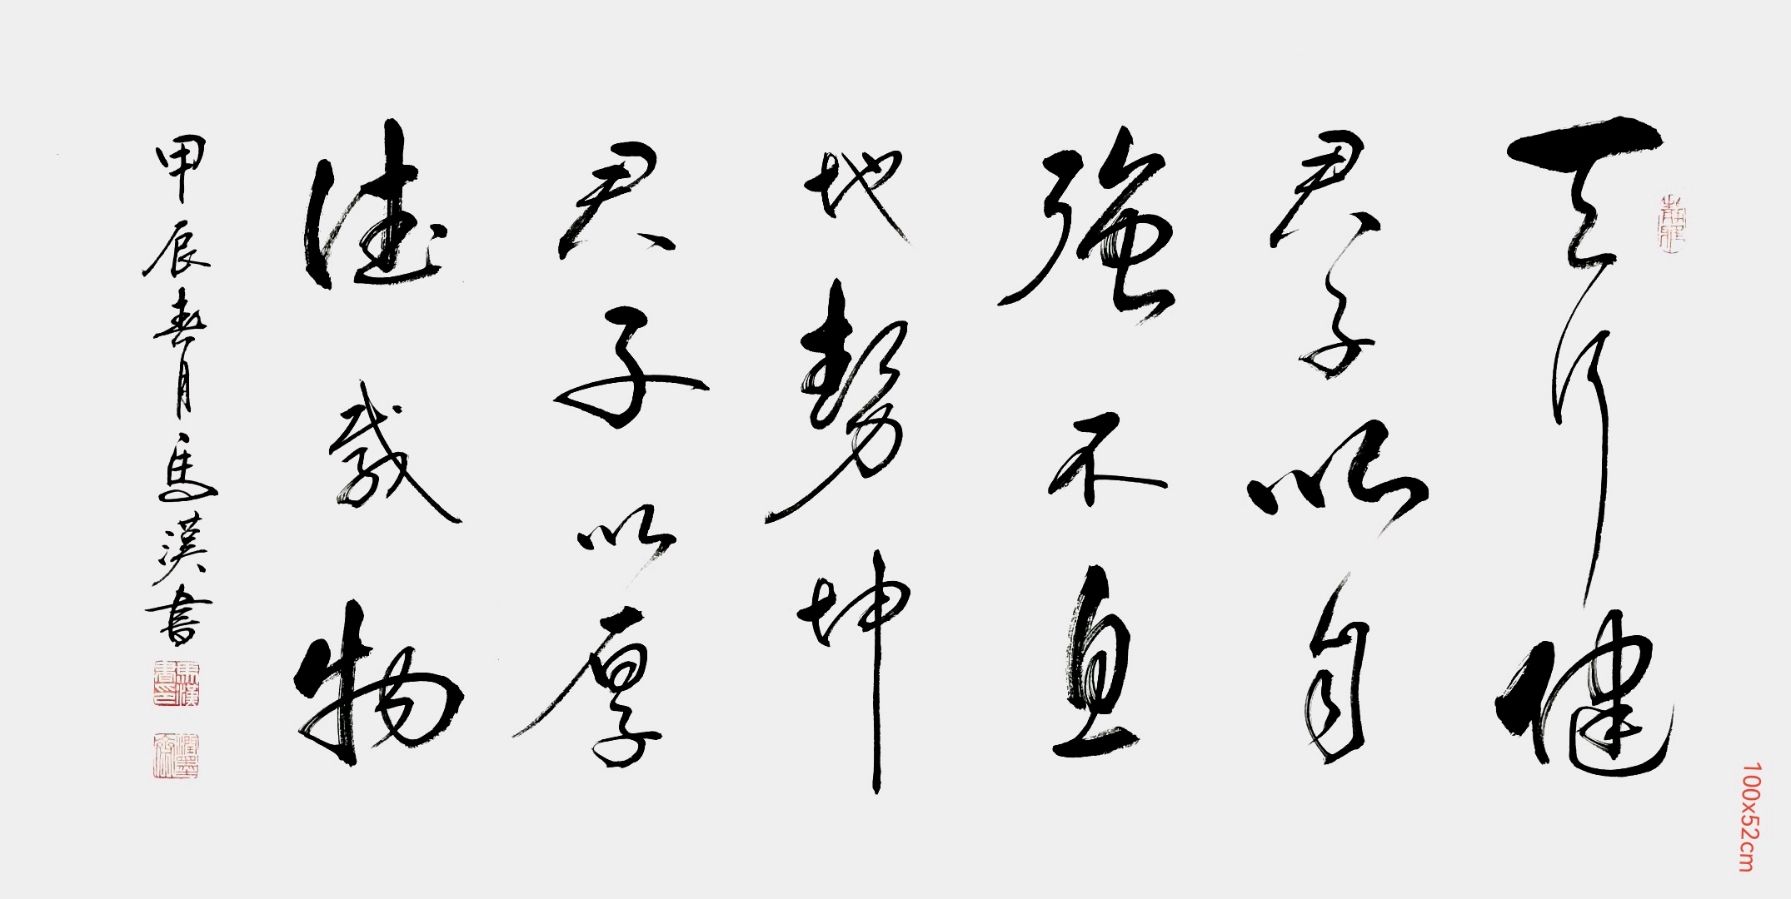 天行健
君子以自
強不息
地勢坤
君子以厚
德載物
甲辰春月馬漢書
馬漢書印
100x52cm